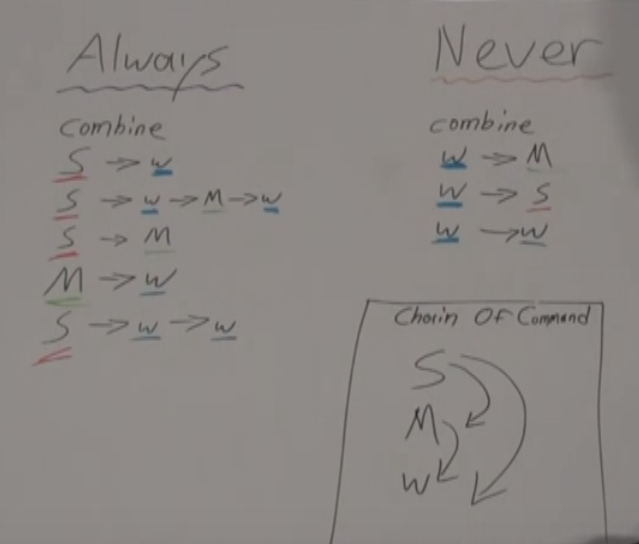 Always
combine
S → w
S → w → M → w
S → M
M → w
S → w → w
Never
combine
w → M
w → S
w → w
Chain Of Command
S
M
w